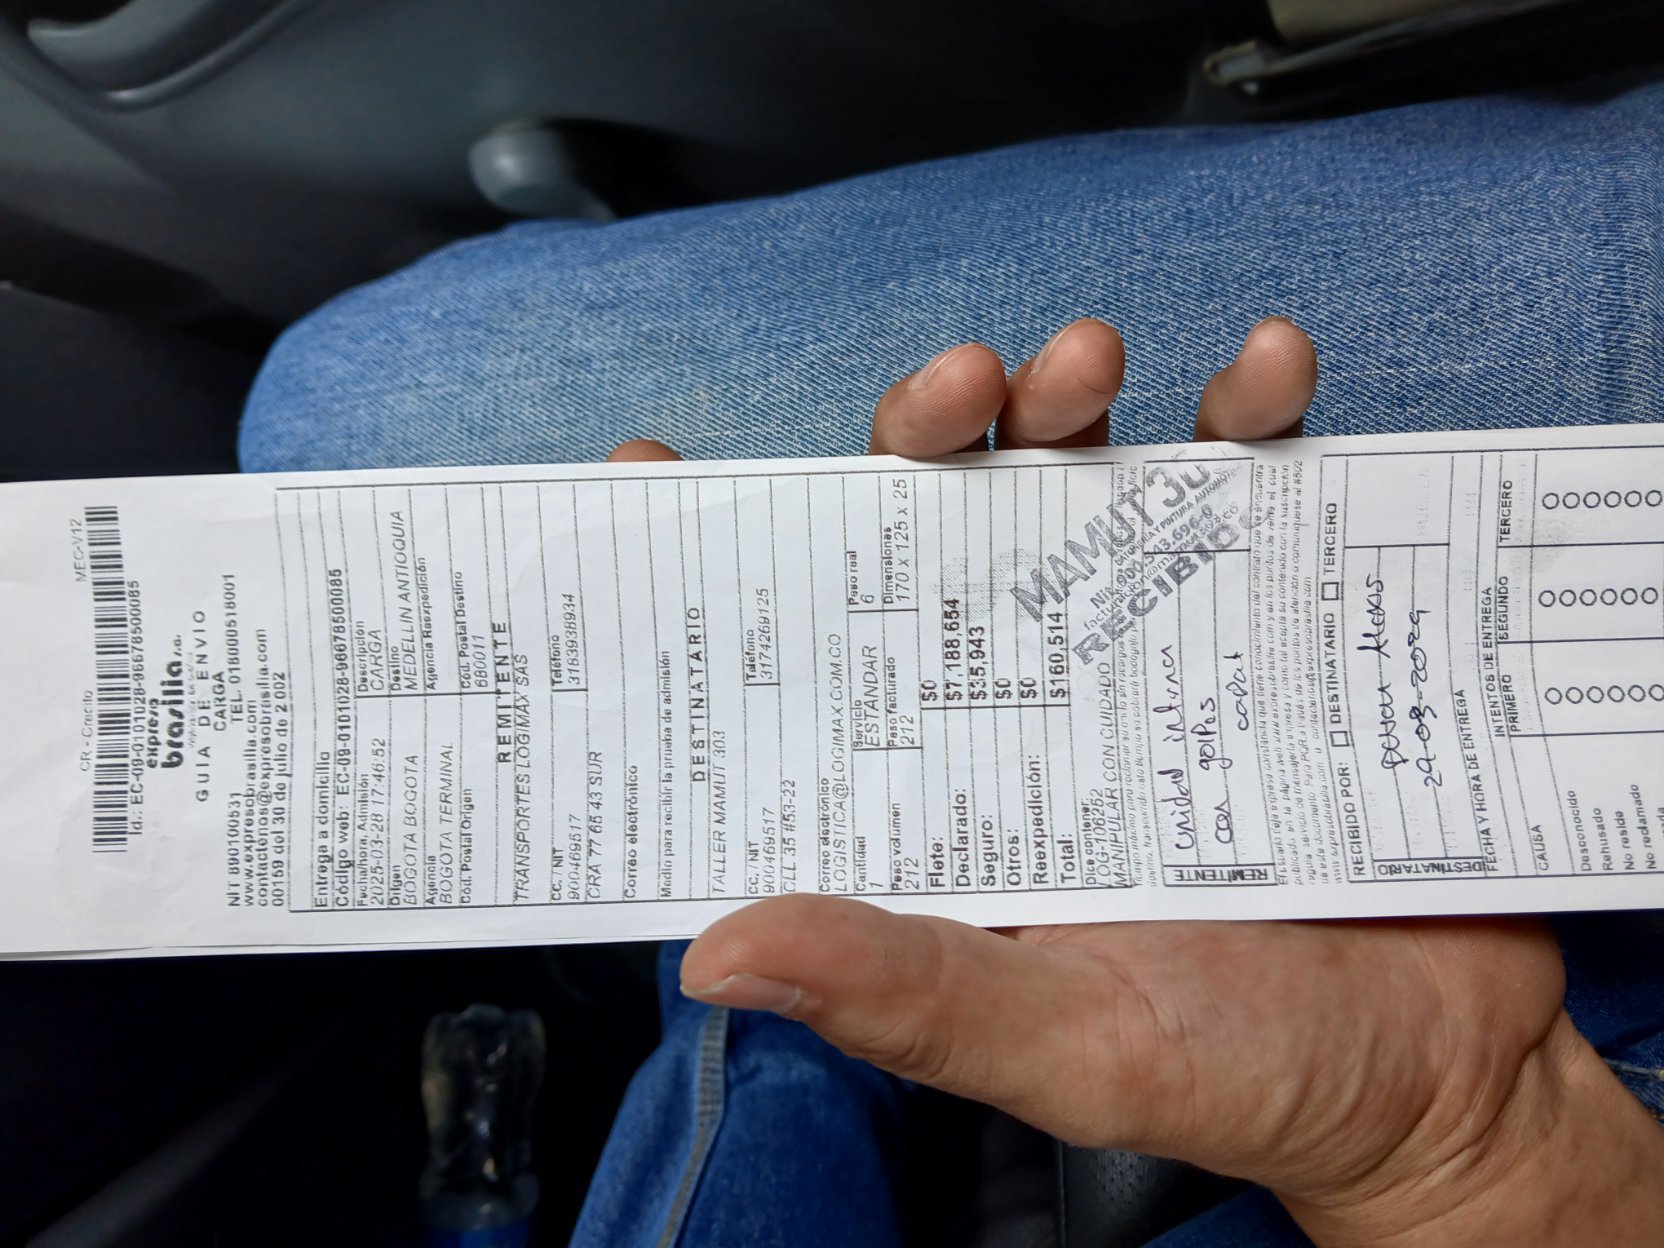 CR - Credito
MEC-V12
Id.: EC-09-0101028-96678500085
expreso
brasilia s.a.
GUIA DE ENVIO
CARGA
NIT 890100531
TEL. 018000518001
www.expresobrasilia.com
contactenos@expresobrasilia.com
00159 del 30 de julio de 2002
Entrega a domicilio
Código web: EC-09-0101028-96678500085
Fecha/hora, Admisión
2025-03-28 17:46:52
Descripción
CARGA
Origen
BOGOTA BOGOTA
Destino
MEDELLIN ANTIOQUIA
Agencia
BOGOTA TERMINAL
Agencia Reexpedición
Cód. Postal Origen
Cód. Postal Destino
680011
REMITENTE
TRANSPORTES LOGIMAX SAS
CC, NIT
900469517
Teléfono
3183938934
CRA 77 65 43 SUR
Correo electrónico
Medio para recibir la prueba de admisión
DESTINATARIO
TALLER MAMUT 303
CC, NIT
900469517
Teléfono
3174269125
CLL 35 #53-22
Correo electrónico
LOGISTICA@LOGIMAX.COM.CO
Cantidad
1
Servicio
ESTANDAR
Peso real
6
Peso volumen
212
Peso facturado
212
Dimensiones
170 x 125 x 25
Flete: $0
Declarado: $7,188,654
Seguro: $35,943
Otros: $0
Reexpedición: $0
Total: $160,514
Dice contener:
LOG-106252
MANIPULAR CON CUIDADO
MAMUT 30
RECIBID
REMITENTE
unidad
con golpes
capot
RECIBIDO POR: DESTINATARIO TERCERO
DESTINATARIO
FECHA Y HORA DE ENTREGA
INTENTOS DE ENTREGA
PRIMERO SEGUNDO TERCERO
CAUSA
Desconocido
Rehusado
No reside
No reclamado